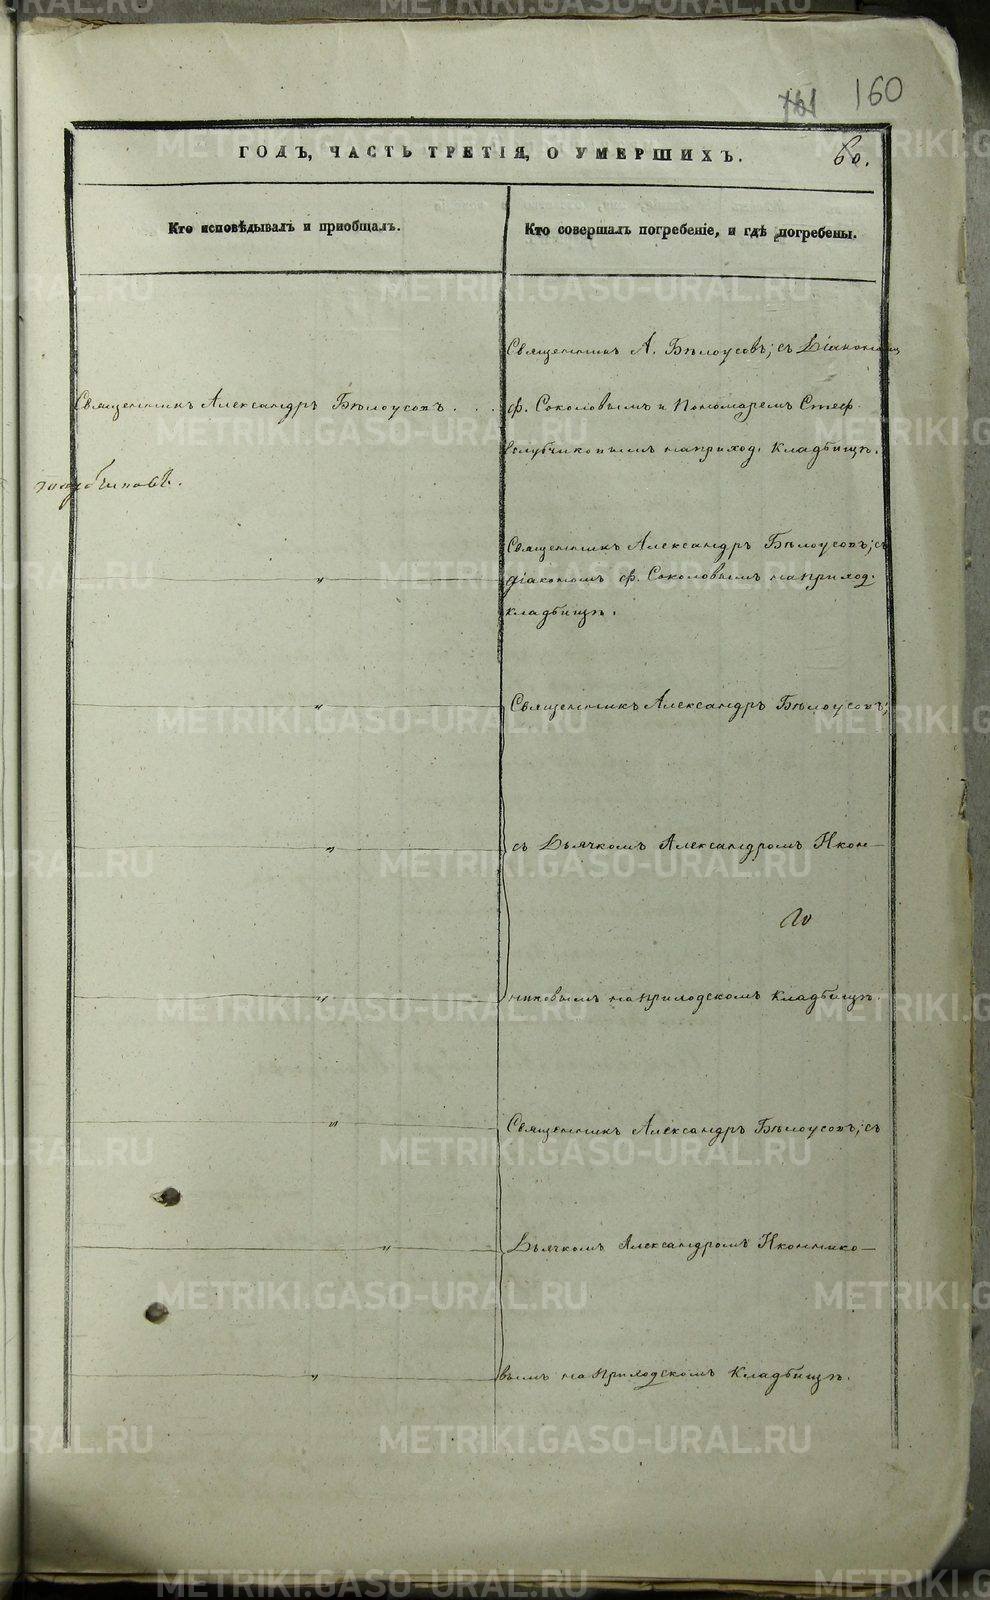 160
161
ГОДЪ, ЧАСТЬ ТРЕТІЯ, О УМЕРШИХЪ.
60.
Кто исповѣдывалъ и приобщалъ.
Кто совершалъ погребеніе, и гдѣ погребены.
Священникъ А. Бѣлоусовъ; съ Діакономъ
Священникъ Александръ Бѣлоусовъ . . .
ф. Соколовымъ и Пономаремъ Стеф.
Голубчиковымъ на приход. кладбищѣ.
Священникъ Александръ Бѣлоусовъ; съ
„
діакономъ ф. Соколовымъ на приход.
кладбищѣ.
„
Священникъ Александръ Бѣлоусовъ;
„
съ Дьячкомъ Александромъ Икон–
„
никовымъ на приходскомъ кладбищѣ.
„
Священникъ Александръ Бѣлоусовъ; съ
„
Дьячкомъ Александромъ Иконнико–
„
вымъ на приходскомъ кладбищѣ.
METRIKI.GASO-URAL.RU